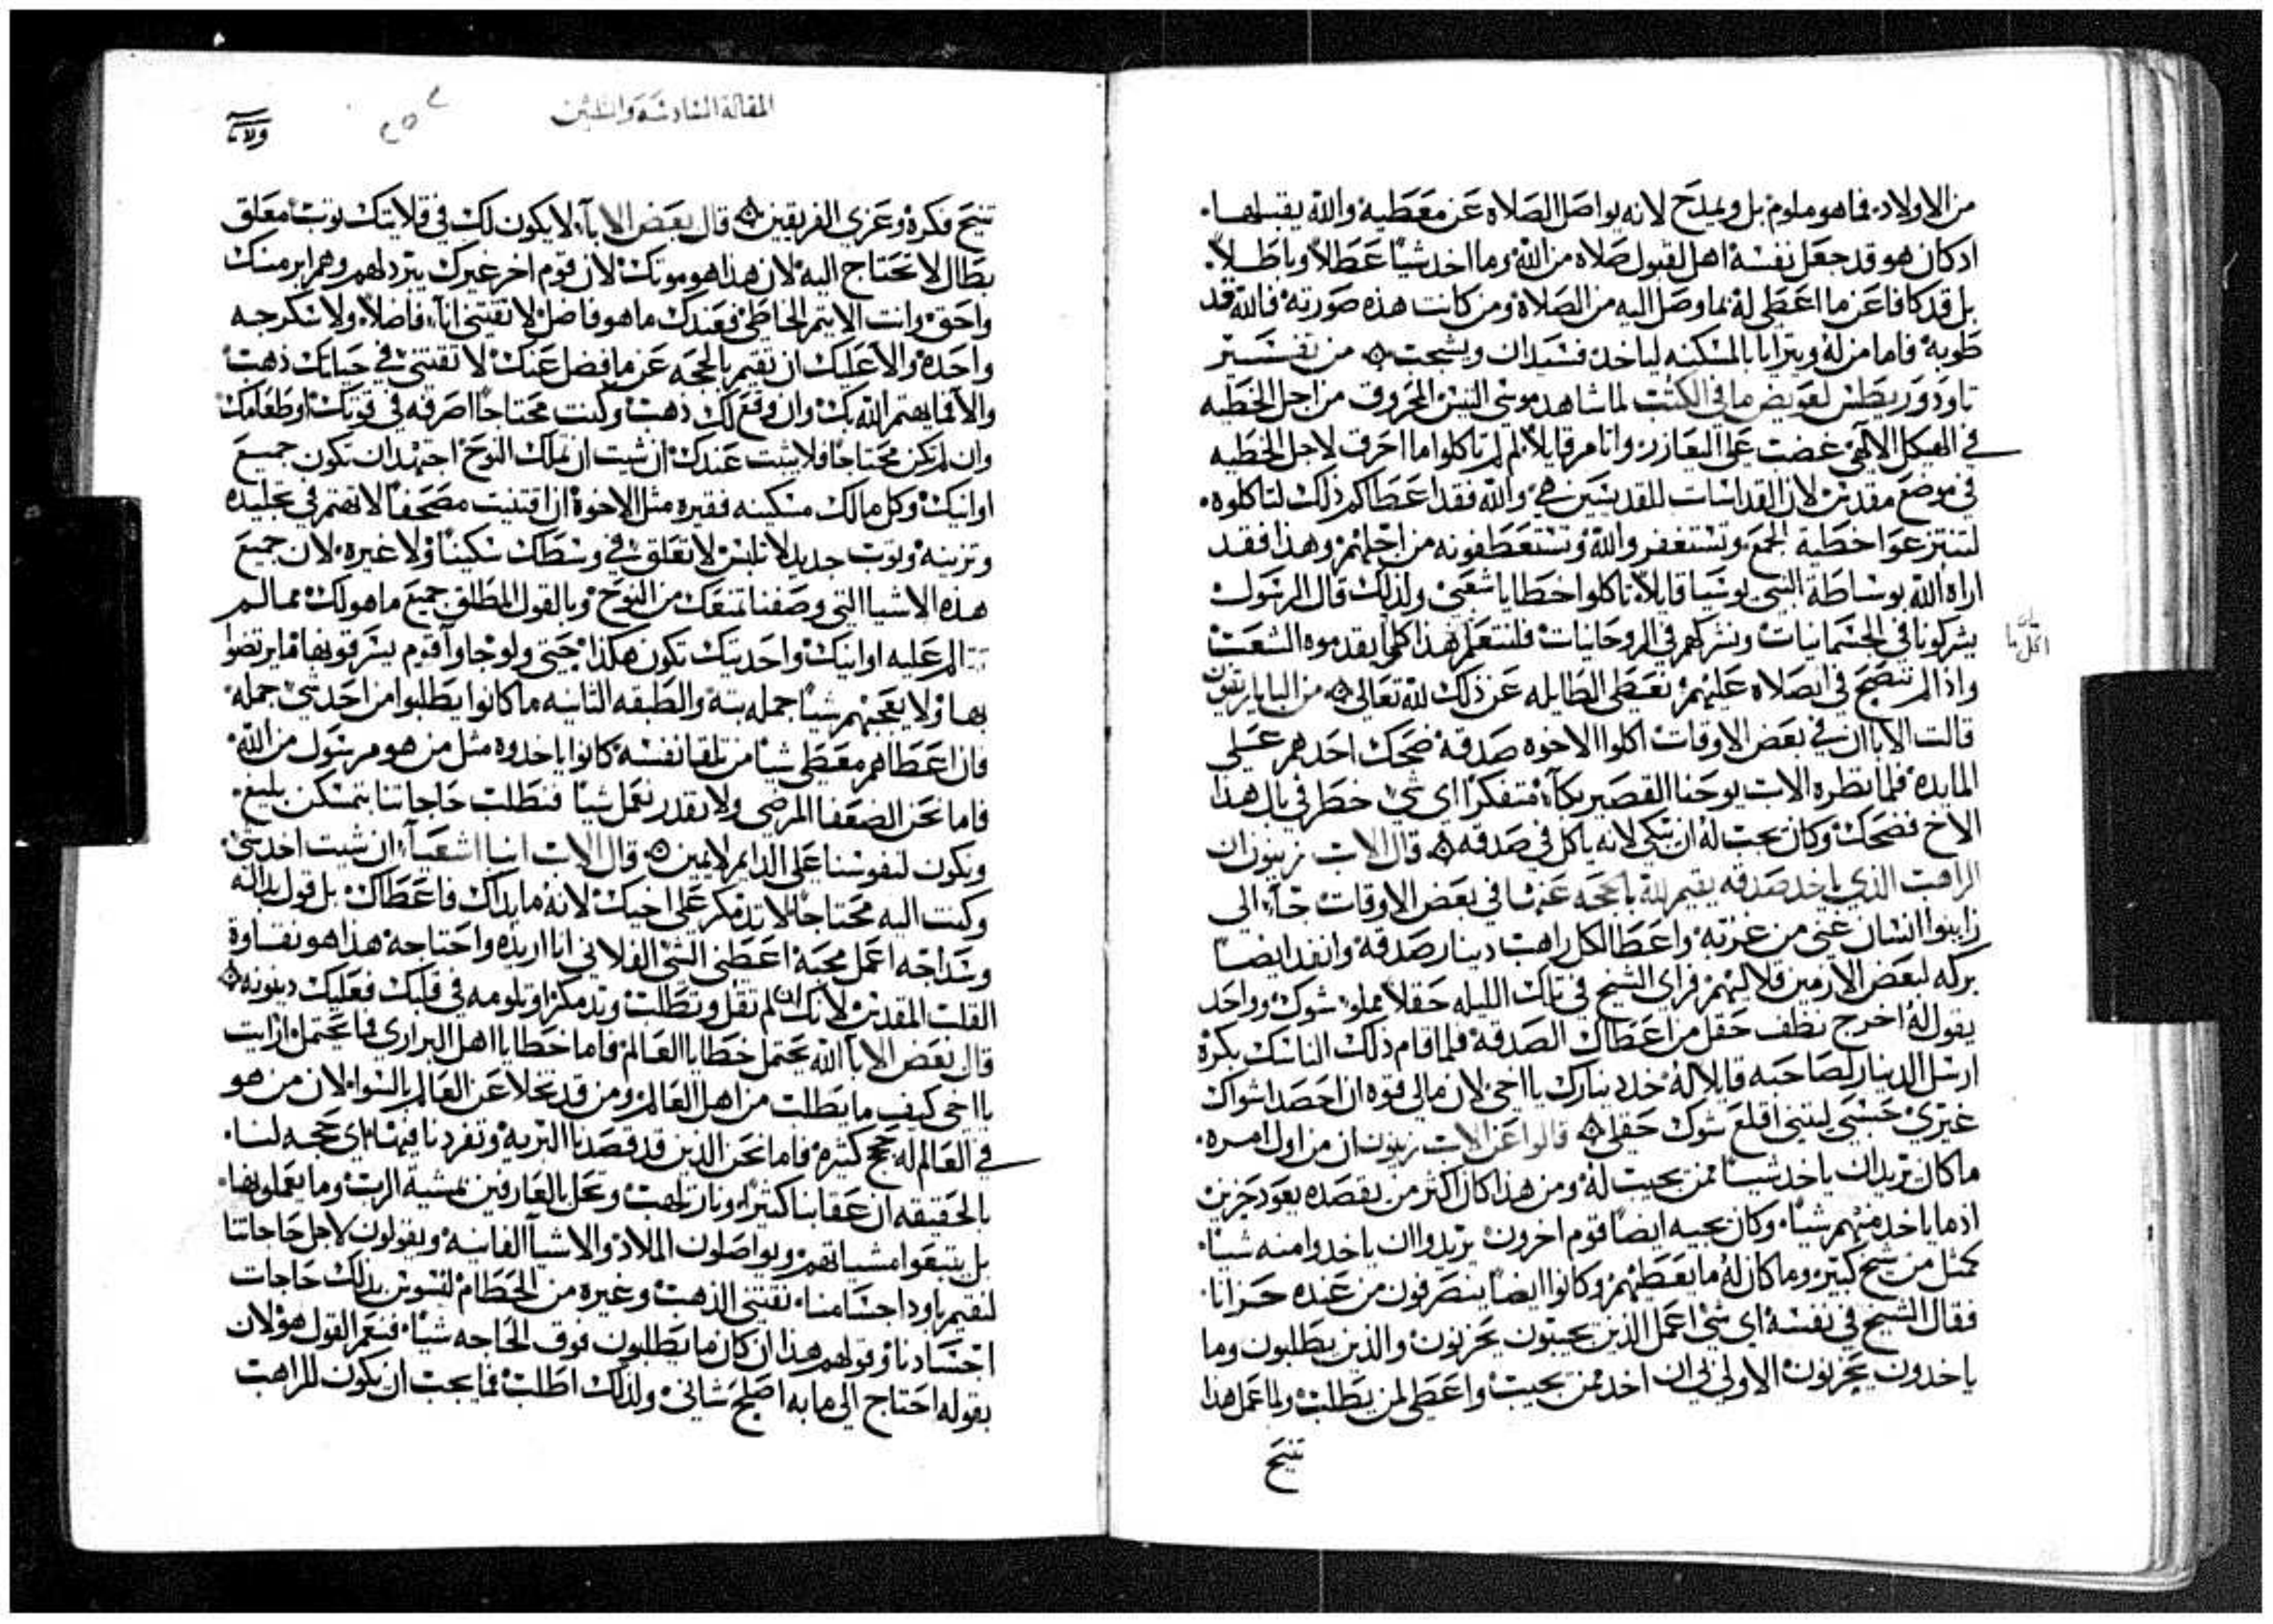 من الاولاد فما هو ملوم بل ويمدح لانه يواصل الصلاة عن معطيه والله يقبلها
اد كان هو قد جعل نفسه اهل لقبول صلاه من الله وما اخد شيا عطلاً وباطلاً
بل قد كافا عن ما اعطى له بما وصل اليه من الصلاة ومن كانت هذه صورته فالله قد
طوبه فاما من له ويترايا بالمسكنه لياخد فسيدان ويشجب من تفسير
تاودوريطس لعويض ما في الكتب لما شاهد موسى التيس المحروق من اجل الخطيه
في الهيكل الالهي غضب على العازر واتامر قايلاً لم لم تاكلوا ما احرق لاجل الخطيه
في موضع مقدس لان القداسات للقديسين هي والله فقد اعطاكم ذلك لتاكلوه
لتنتزعوا خطية الجمع وتستغفروا الله وتستعطفونه من اجلهم وهذا فقد
اراه الله بوساطة النبي يوشيا قايلاً تاكلوا خطايا شعبي ولذلك قال الرسول
يشركونا في الجسمانيات ونشركهم في الروحانيات فلنتعلم هذا كلما يقدموه الشعب
واذا لم ننصح في الصلاه عليهم نعطى الطايله عن ذلك لله تعالى من الباباريقون
قالت الابا ان في بعض الاوقات اكلوا الاخوه صدقة ضحك احدهم على
المايده فلما نظره الاب يوحنا القصير بكا متفكراً اي شي خطر في بال هذا
الاخ فضحك وكان يجب له ان يبكي لانه ياكل في صدقه قال الاب زينون ان
الراهب الذي ياخد صدقه يقيم لله بالحجه عنها في بعض الاوقات جاء الى
زابنوا انسان غني من غربه واعطا لكل راهب دينار صدقة وانفد ايضاً
بركه لبعض الارمين قلاليهم فراى الشيخ في تلك الليله حقلاً مملو شوك وواحد
يقول له اخرج نظف حقل من اعطاك الصدقة فلما قام ذلك الناسك بكرة
ارسل الدينار لصاحبه قايلاً له خد دينارك يا اخي لان مالي قوه ان احصد اشواك
غيري حسبي ليتني اقلع شوك حقلي قالوا عن الاب زينون ان من اول امره
ما كان يريد ان ياخد شيا ممن يجيب له ومن هذا كان اكثر من يقصده يعود حزين
اذ ما ياخد منهم شيا وكان يجيه ايضاً قوم اخرون يريدوا ان ياخدوا منه شيا
كمثل من شيخ كبير وما كان له ما يعطيهم وكانوا ايضاً ينصرفون من عنده حزانا
فقال الشيخ في نفسه اي شي اعمل الذين يجيبون يحزنون والذين يطلبون وما
ياخدون يحزنون الاولى لي ان اخد ممن يجيب واعطى لمن يطلب ولما عمل هذا
تنيح
المقالة السادسة والثلثين
تنيح فكره وعزى الفريقين قال بعض الابا لا يكون لك في قلايتك توب معلق
بطال لا تحتاج اليه لان هذا هو موتك لان قوم اخر غيرك يتبردلهم وهم ابر منك
واحق وانت الايتم الخاطي فعندك ما هو فاضل لا تقتني اناء فاضلاً ولا سكرجه
واحده والا عليك ان تقيم بالحجه عن ما فضل عنك لا تقتني في حياتك ذهب
والا فما يهتم الله بك وان وقع لك ذهب وكنت محتاجاً اصرفه في قوتك او طعامك
وان لم تكن محتاجاً فلا يبيت عندك ان شيت ان تملك النوح اجتهد ان تكون جميع
اوانيك وكل مالك مسكينه فقيره مثل الاخوة ان اقتنيت مصحفاً لا تهتم في تجليده
وتزيينه وتوب جديد لا تلبس لا تعلق في وسطك سكيناً ولا غيره لان جميع
هذه الاشيا التي وصفنا تمنعك من النوح وبالقول المطلق جميع ما هو لك مما لم
تتالم عليه اوانيك واحديتك تكون هكذا حتى ولو جاوا قوم يسرقونها فما يرتضوا
بها ولا يعجبهم شيا جمله بتة والطبقه الثانيه ما كانوا يطلبوا من احد شي جمله
فان اعطاهم معطى شيا من تلقا نفسه كانوا ياخدوه مثل من هو مرسول من الله
فاما نحن الضعفا المرضى ولا نقدر نعمل شيا فنطلب حاجاتنا بتمسكن بليغ
ونكون لنفوسنا على الدايم لايمين قال الاب انبا اشعيا ان شيت اخد شي
وكنت اليه محتاجاً لا تدمكر على اخيك لانه ما بداك فاعطاك بل قول بداله
وسداجه اعمل محبة اعطني الشي الفلاني انا اريده واحتاجه هذا هو نقاوة
القلب المقدس لانك ان لم تقل وتطلب وتدمكر وتلومه في قلبك فعليك دينونه
قال بعض الابا الله يحتمل خطايا العالم فاما خطايا اهل البراري فما يحتمل ارايت
يا اخي كيف ما يطلب من اهل العالم ومن قد تخلا عن العالم بالسوا لان من هو
في العالم له حجج كثيره فاما نحن الذين قد قصدنا البريه وتفردنا فيها اي حجه لنا
بالحقيقه ان عقابنا كثيراً ونار تلهب وتحل بالعارفين بمشية الرب وما يعملونها
بل يتبعوا مشياتهم ويواصلون الملاد والاشيا الفانيه ويقولون لاجل حاجاتنا
لنقيم باود اجسامنا نقتني الذهب وغيره من الحطام لنسوس بذلك حاجات
اجسادنا وقولهم هذا ان كان ما يطلبون فوق الحاجه شيا فنعم القول هو لان
بقوله احتاج الى ما به اصلح شاني ولذلك اطلب فما يجب ان يكون للراهب